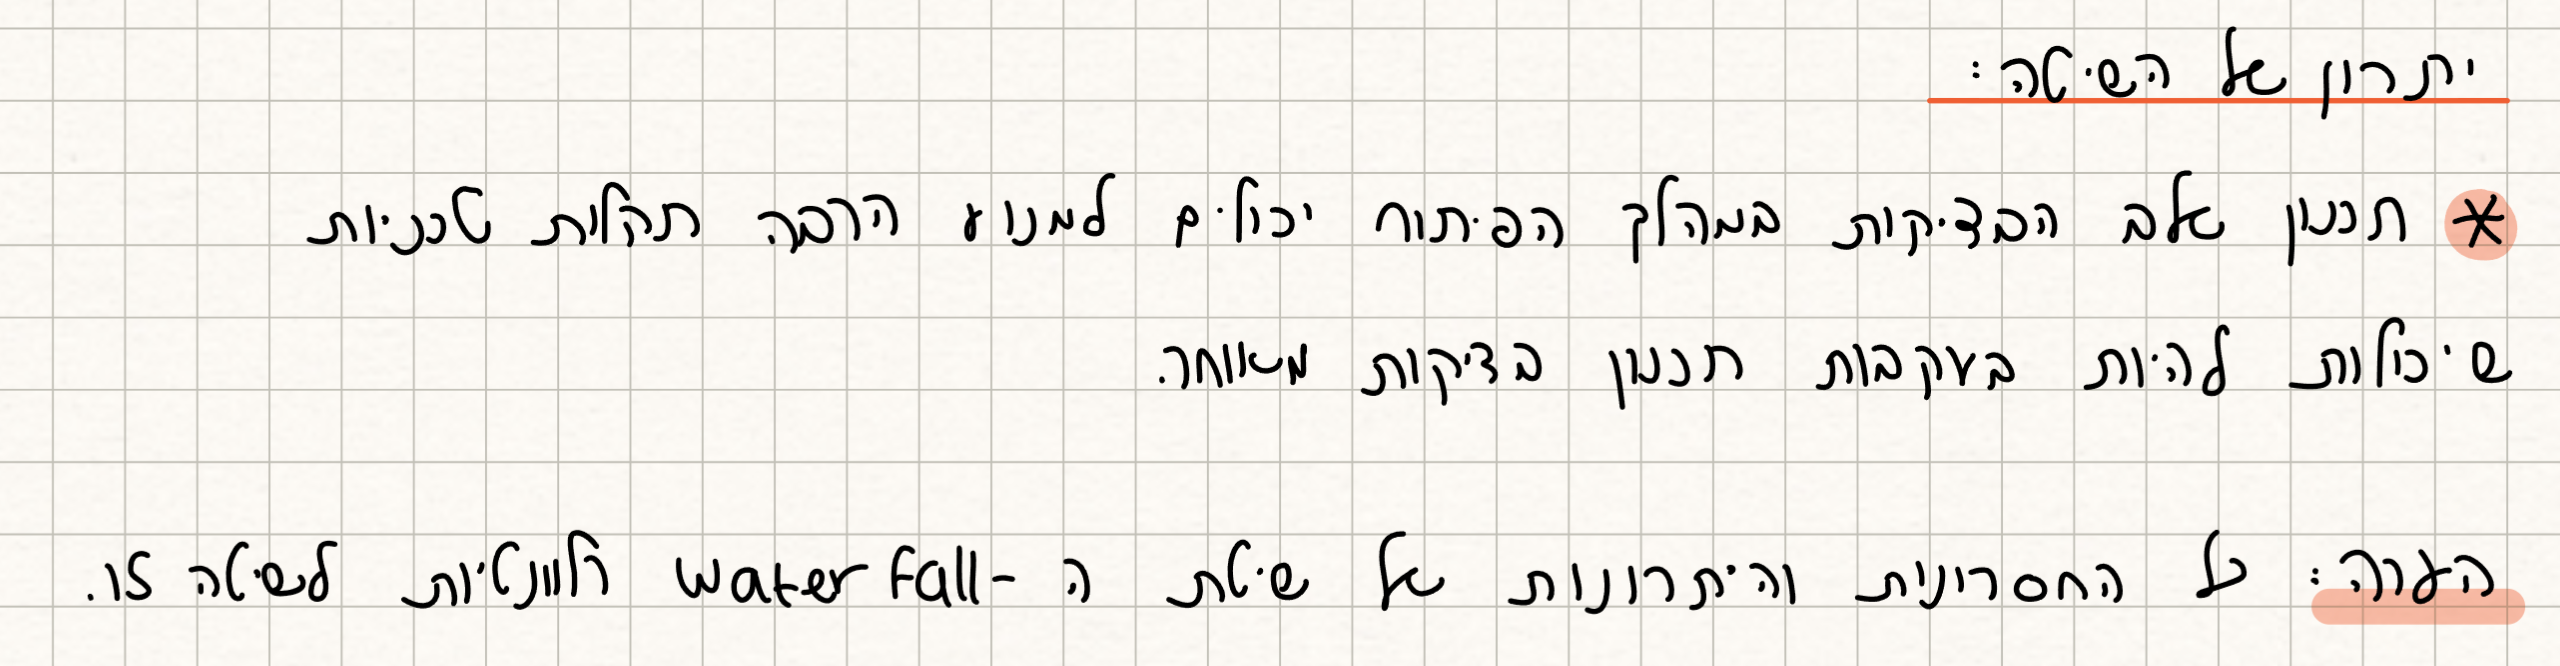 יתרון של השיטה:
* תכנון שלב הבדיקות במהלך הפיתוח יכולים למנוע הרבה תקלות טכניות
שיכולות להיות בעקבות תכנון בדיקות מאוחר.
הערה: כל החסרונות והיתרונות של שיטת ה -Waterfall רלוונטיות לשיטה זו.